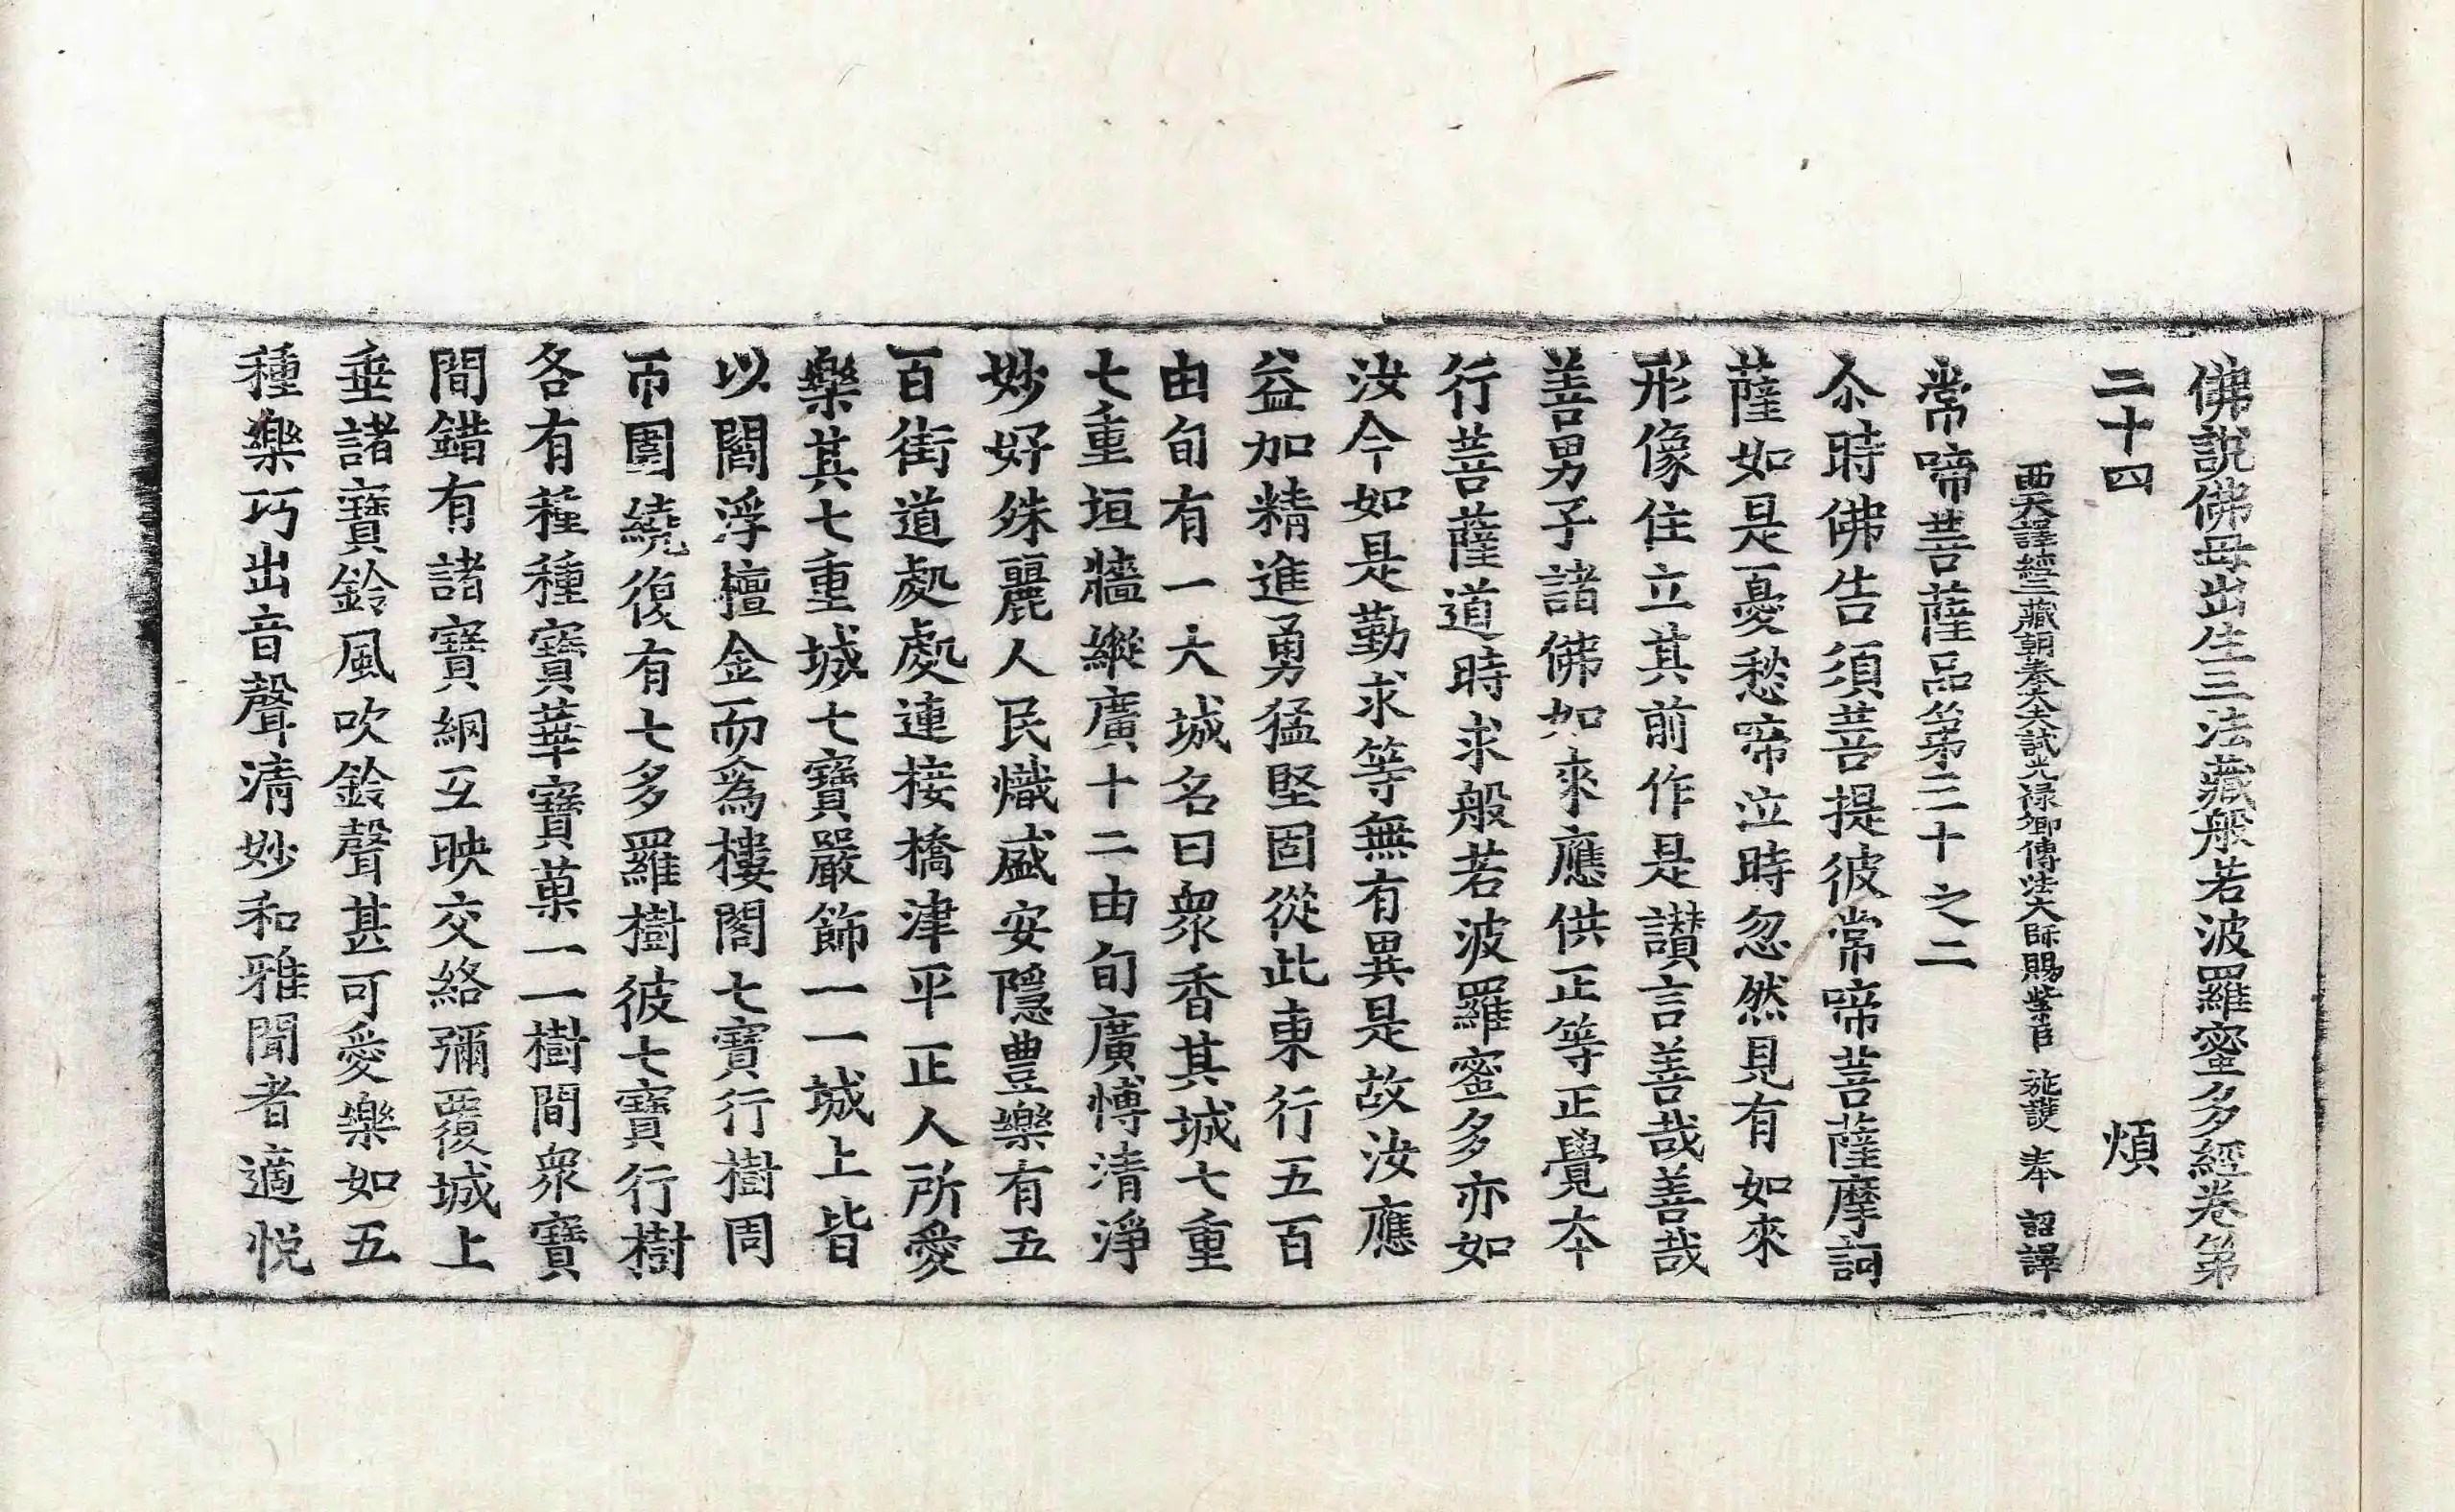 佛說佛母出生三法藏般若波羅蜜多經卷第
二十四 煩
西天譯經三藏朝奉大夫試光祿卿傳法大師賜紫臣 施護 奉 詔譯
常啼菩薩品第三十之二
尒時佛告須菩提彼常啼菩薩摩訶
薩如是憂愁啼泣時忽然見有如來
形像住立其前作是讃言善哉善哉
善男子諸佛如來應供正等正覺夲
行菩薩道時求般若波羅蜜多亦如
汝今如是勤求等無有異是故汝應
益加精進勇猛堅固從此東行五百
由旬有一大城名曰衆香其城七重
七重垣牆縱廣十二由旬廣愽清淨
妙好殊麗人民熾盛安隱豊樂有五
百街道處處連接橋津平正人所愛
樂其七重城七寶嚴飾一一城上皆
以閻浮檀金而爲樓閣七寶行樹周
帀圍繞復有七多羅樹彼七寶行樹
各有種種寶華寶菓一一樹間衆寶
間錯有諸寶網互映交絡彌覆城上
垂諸寶鈴風吹鈴聲甚可愛樂如五
種樂巧出音聲清妙和雅聞者適悅